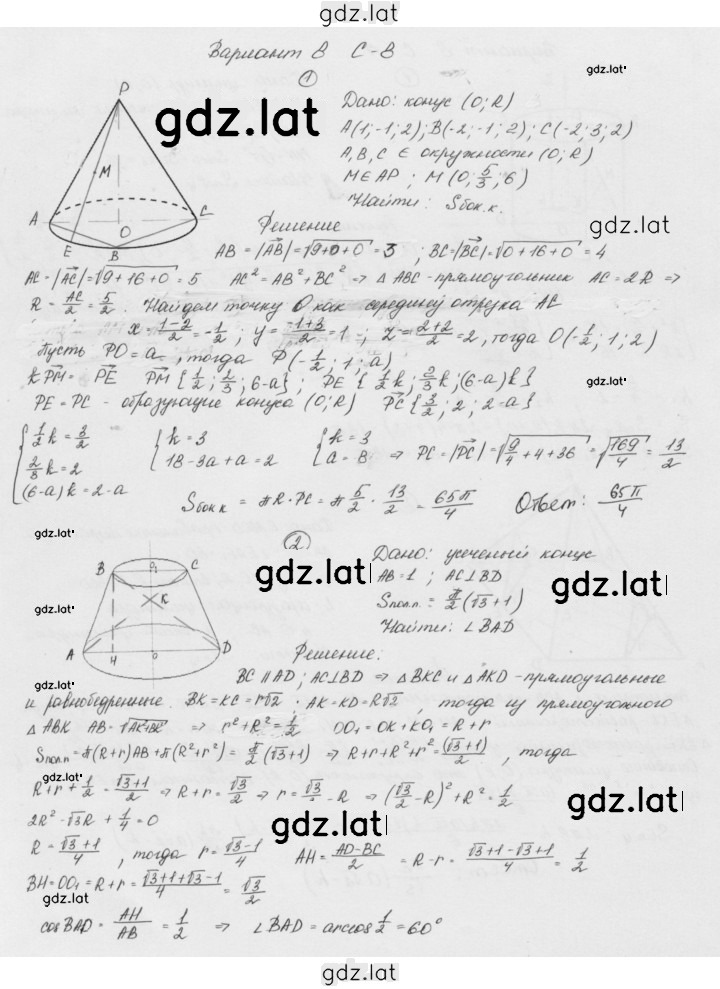 gdz.lat
Вариант 8 С-8
gdz.lat
1
P
Дано: конус (О; R)
A(1; -1; 2); B(-2; -1; 2); C(-2; 3; 2)
gdz.lat
A, B, C ∈ окружности (О; R)
M
M ∈ AP; M(0; 5/3; 6)
Найти: Sбок.к.
A O C
E B
gdz.lat
Решение
AB = |AB| = √9+0+0 = 3; BC = |BC| = √0+16+0 = 4
AC = |AC| = √9+16+0 = 5 AC² = AB² + BC² ⇒ △ABC - прямоугольник AC = 2R ⇒
R = AC/2 = 5/2. Найдем точку О как середину отрука AC
x = 1-2/2 = -1/2; y = -1+3/2 = 1; z = 2+2/2 = 2, тогда O(-1/2; 1; 2)
Пусть PO = a, тогда P(-1/2; 1; a)
k PM = PE PM {1/2; 2/3; 6-a}; PE {1/2 k; 2/3 k; (6-a)k}
gdz.lat
PE = PC - образующие конуса (О; R) PC {3/2; 2; 2-a}
{1/2 k = 3/2
2/3 k = 2
(6-a)k = 2-a
{k = 3
18-3a+a = 2
{k = 3
a = 8 ⇒ PC = |PC| = √9/4+4+36 = √169/4 = 13/2
Sбок.к = πR·PC = π5/2 · 13/2 = 65π/4 Ответ: 65π/4
gdz.lat
2
Дано: усеченый конус
B O₁ C
gdz.lat
AB = 1; AC⊥BD
gdz.lat
K
Sпол.п. = π/2(√3+1)
gdz.lat
Найти: ∠BAD
A H O D
Решение:
gdz.lat
BC ∥ AD; AC⊥BD ⇒ △BKC и △AKD - прямоугольные
и равнобедренные. BK = KC = r√2 · AK = KD = R√2, тогда из прямоугольного
△ABK AB = √AK²+BK² ⇒ r²+R² = 1/2 OO₁ = OK + KO₁ = R + r
Sпол.п = π(R+r)AB + π(R²+r²) = π/2(√3+1) ⇒ R+r+R²+r² = (√3+1)/2, тогда
gdz.lat
R+r+1/2 = √3+1/2 ⇒ R+r = √3/2 ⇒ r = √3/2 - R ⇒ (√3/2 - R)² + R² = 1/2
gdz.lat
2R² - √3R + 1/4 = 0
gdz.lat
R = √3+1/4, тогда r = √3-1/4 AH = AD-BC/2 = R-r = √3+1-√3+1/4 = 1/2
BH = OO₁ = R+r = √3+1+√3-1/4 = √3/2
cos BAD = AH/AB = 1/2 ⇒ ∠BAD = arccos 1/2 = 60°
gdz.lat